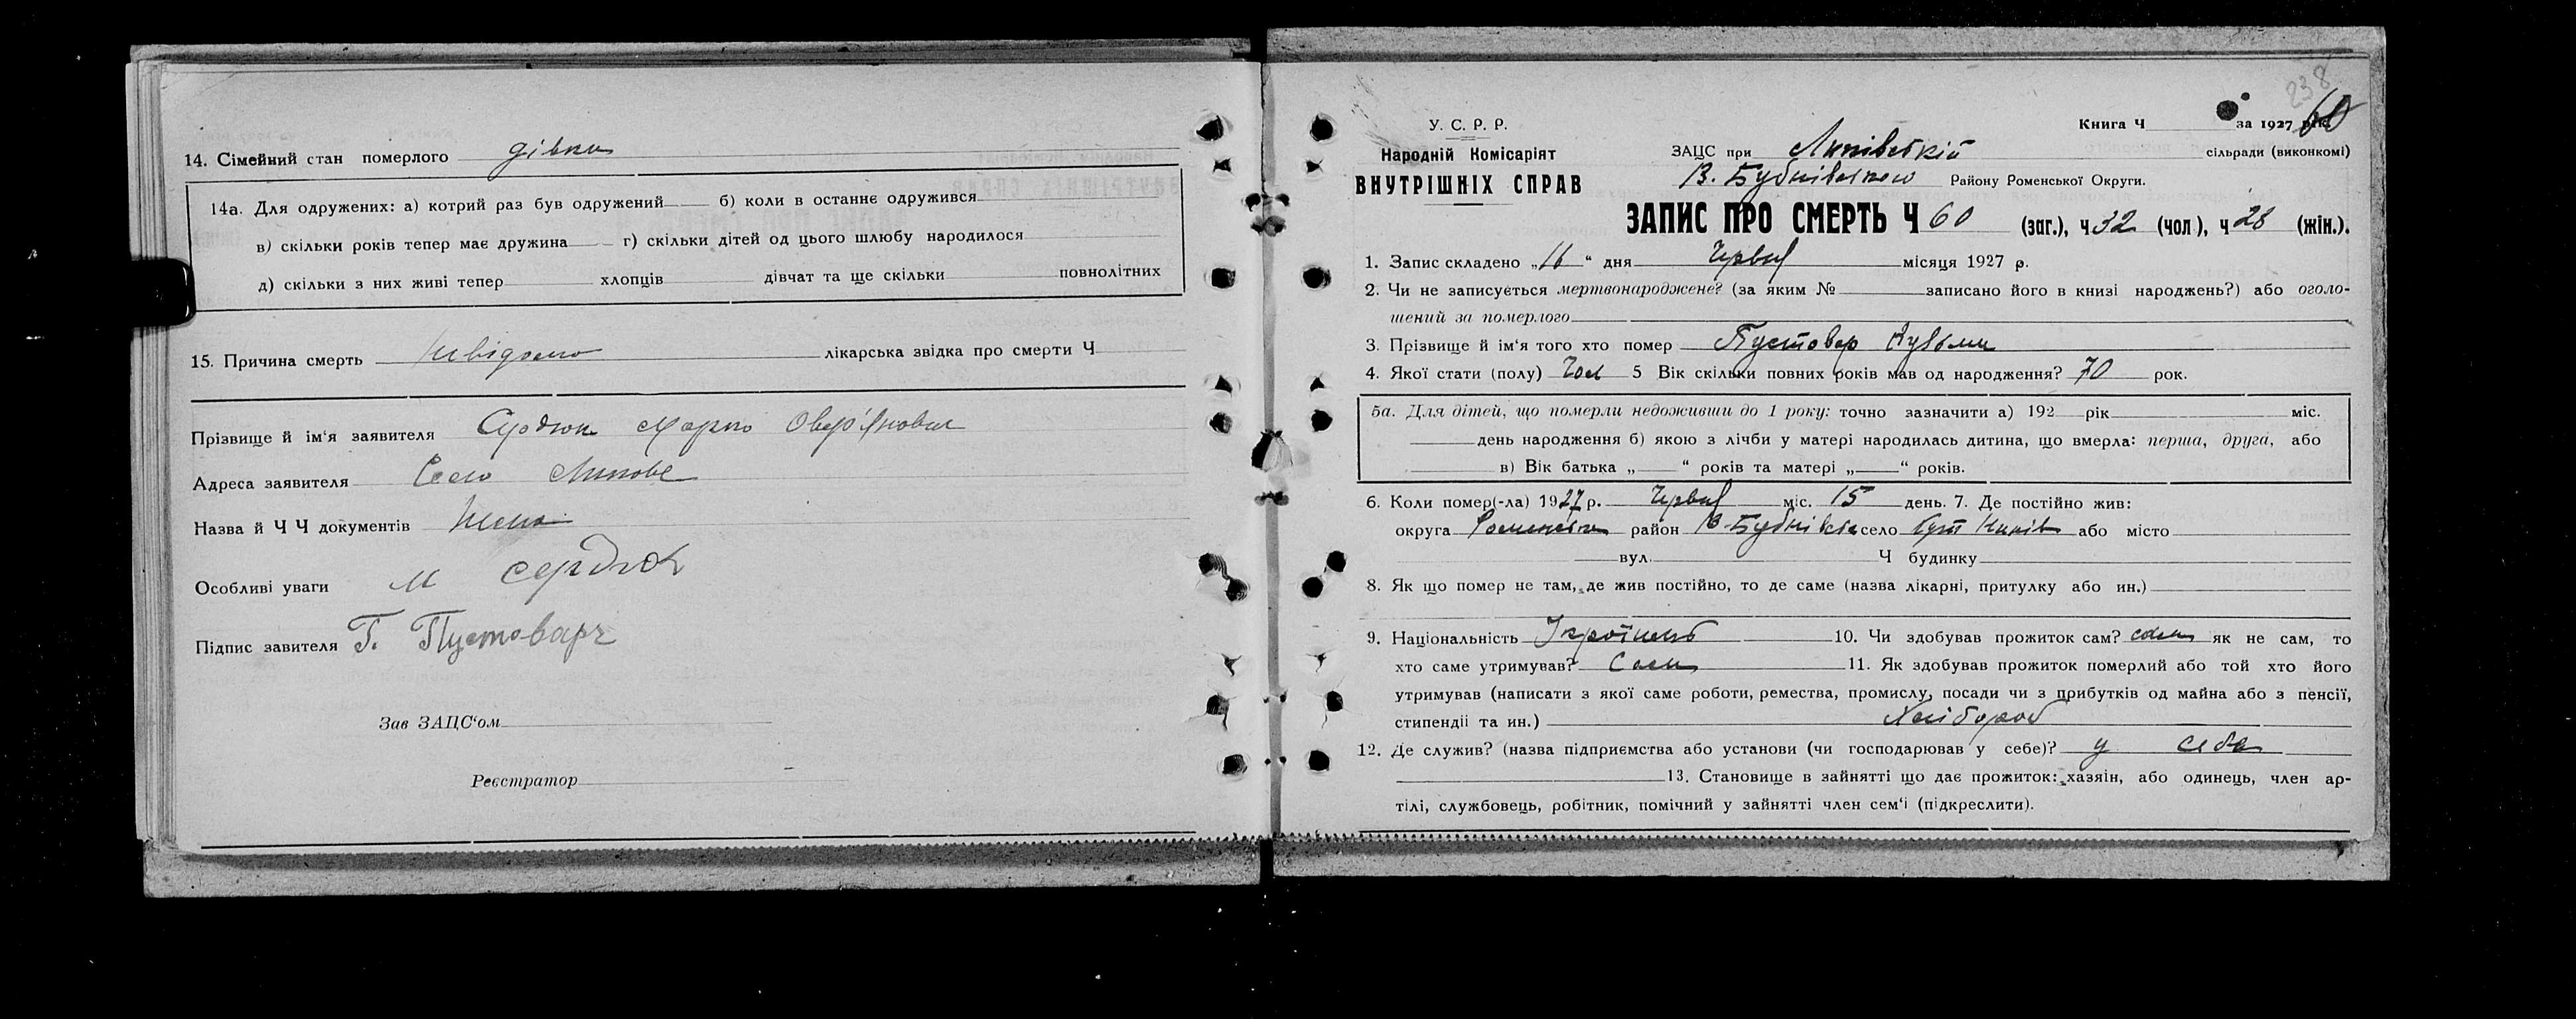 14. Сімейний стан померлого дівка
14а. Для одружених: а) котрий раз був одружений б) коли в останнє одружився
в) скільки років тепер має дружина г) скільки дітей од цього шлюбу народилося
д) скільки з них живі тепер хлопців дівчат та ще скільки повнолітних
15. Причина смерть невідомо лікарська звідка про смерти Ч
Прізвище й ім'я заявителя Сердюк Марко Овер'янович
Адреса заявителя Село Липове
Назва й Ч Ч документів Нема
Особливі уваги М Сердюк
Підпис завителя Г. Пустоваръ
Зав ЗАЦС'ом
Реєстратор
238
60
У. С. Р. Р.
Народній Комісаріят
ВНУТРІШНІХ СПРАВ
Книга Ч за 1927 рік
ЗАЦС при Липівській сільради (виконкомі)
В. Бубнівського Району Роменської Округи.
ЗАПИС ПРО СМЕРТЬ Ч 60 (заг.), ч 32 (чол), ч 28 (жін.).
1. Запис складено „16" дня Червня місяця 1927 р.
2. Чи не записується мертвонароджене? (за яким № записано його в книзі народжень?) або оголо-
шений за померлого
3. Прізвище й ім'я того хто помер Пустовар Кузьма
4. Якої стати (полу) Чол 5 Вік скільки повних років мав од народження? 70 рок.
5а. Для дітей, що померли недоживши до 1 року: точно зазначити а) 192 рік міс.
день народження б) якою з лічби у матері народилась дитина, що вмерла: перша, друга, або
в) Вік батька „ " років та матері „ " років.
6. Коли помер(-ла) 1927 р. Червня міс. 15 день. 7. Де постійно жив:
округа Роменська район В-Бубнівськ село або місто
вул. Ч будинку
8. Як що помер не там, де жив постійно, то де саме (назва лікарні, притулку або ин.)
9. Національність Українець 10. Чи здобував прожиток сам? сам як не сам, то
хто саме утримував? Сам 11. Як здобував прожиток померлий або той хто його
утримував (написати з якої саме роботи, ремества, промислу, посади чи з прибутків од майна або з пенсії,
стипендії та ин.) Хлібороб
12. Де служив? (назва підприємства або установи (чи господарював у себе)? у себе
13. Становище в зайнятті що дає прожиток: хазяін, або одинець, член ар-
тілі, службовець, робітник, помічний у зайнятті член сем'ї (підкреслити).